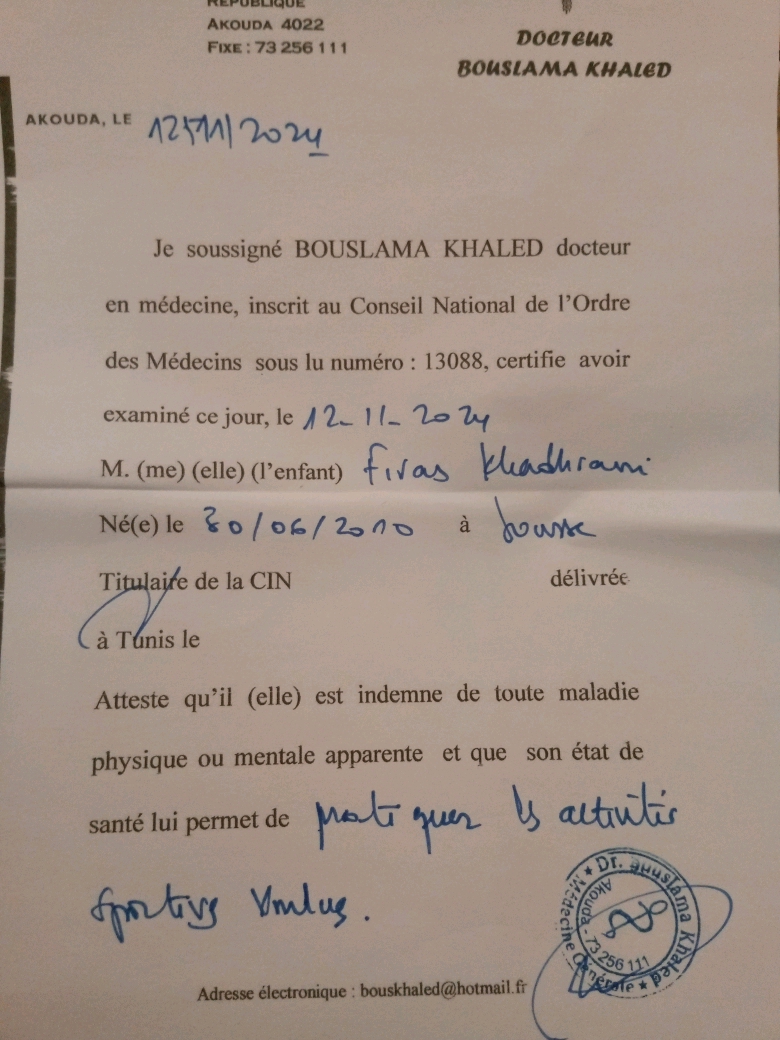 RÉPUBLIQUE
AKOUDA 4022
FIXE : 73 256 111
DOCTEUR
BOUSLAMA KHALED
AKOUDA, LE 12/11/2024
Je soussigné BOUSLAMA KHALED docteur
en médecine, inscrit au Conseil National de l'Ordre
des Médecins sous lu numéro : 13088, certifie avoir
examiné ce jour, le 12-11-2024
M. (me) (elle) (l'enfant) firas Khadhrani
Né(e) le 30/06/2010 à Sousse
Titulaire de la CIN délivrée
à Tunis le
Atteste qu'il (elle) est indemne de toute maladie
physique ou mentale apparente et que son état de
santé lui permet de pratiquer les activités
sportives voulues.
Dr. Bouslama Khaled
Médecine Générale
Akouda - 73 256 111
Adresse électronique : bouskhaled@hotmail.fr